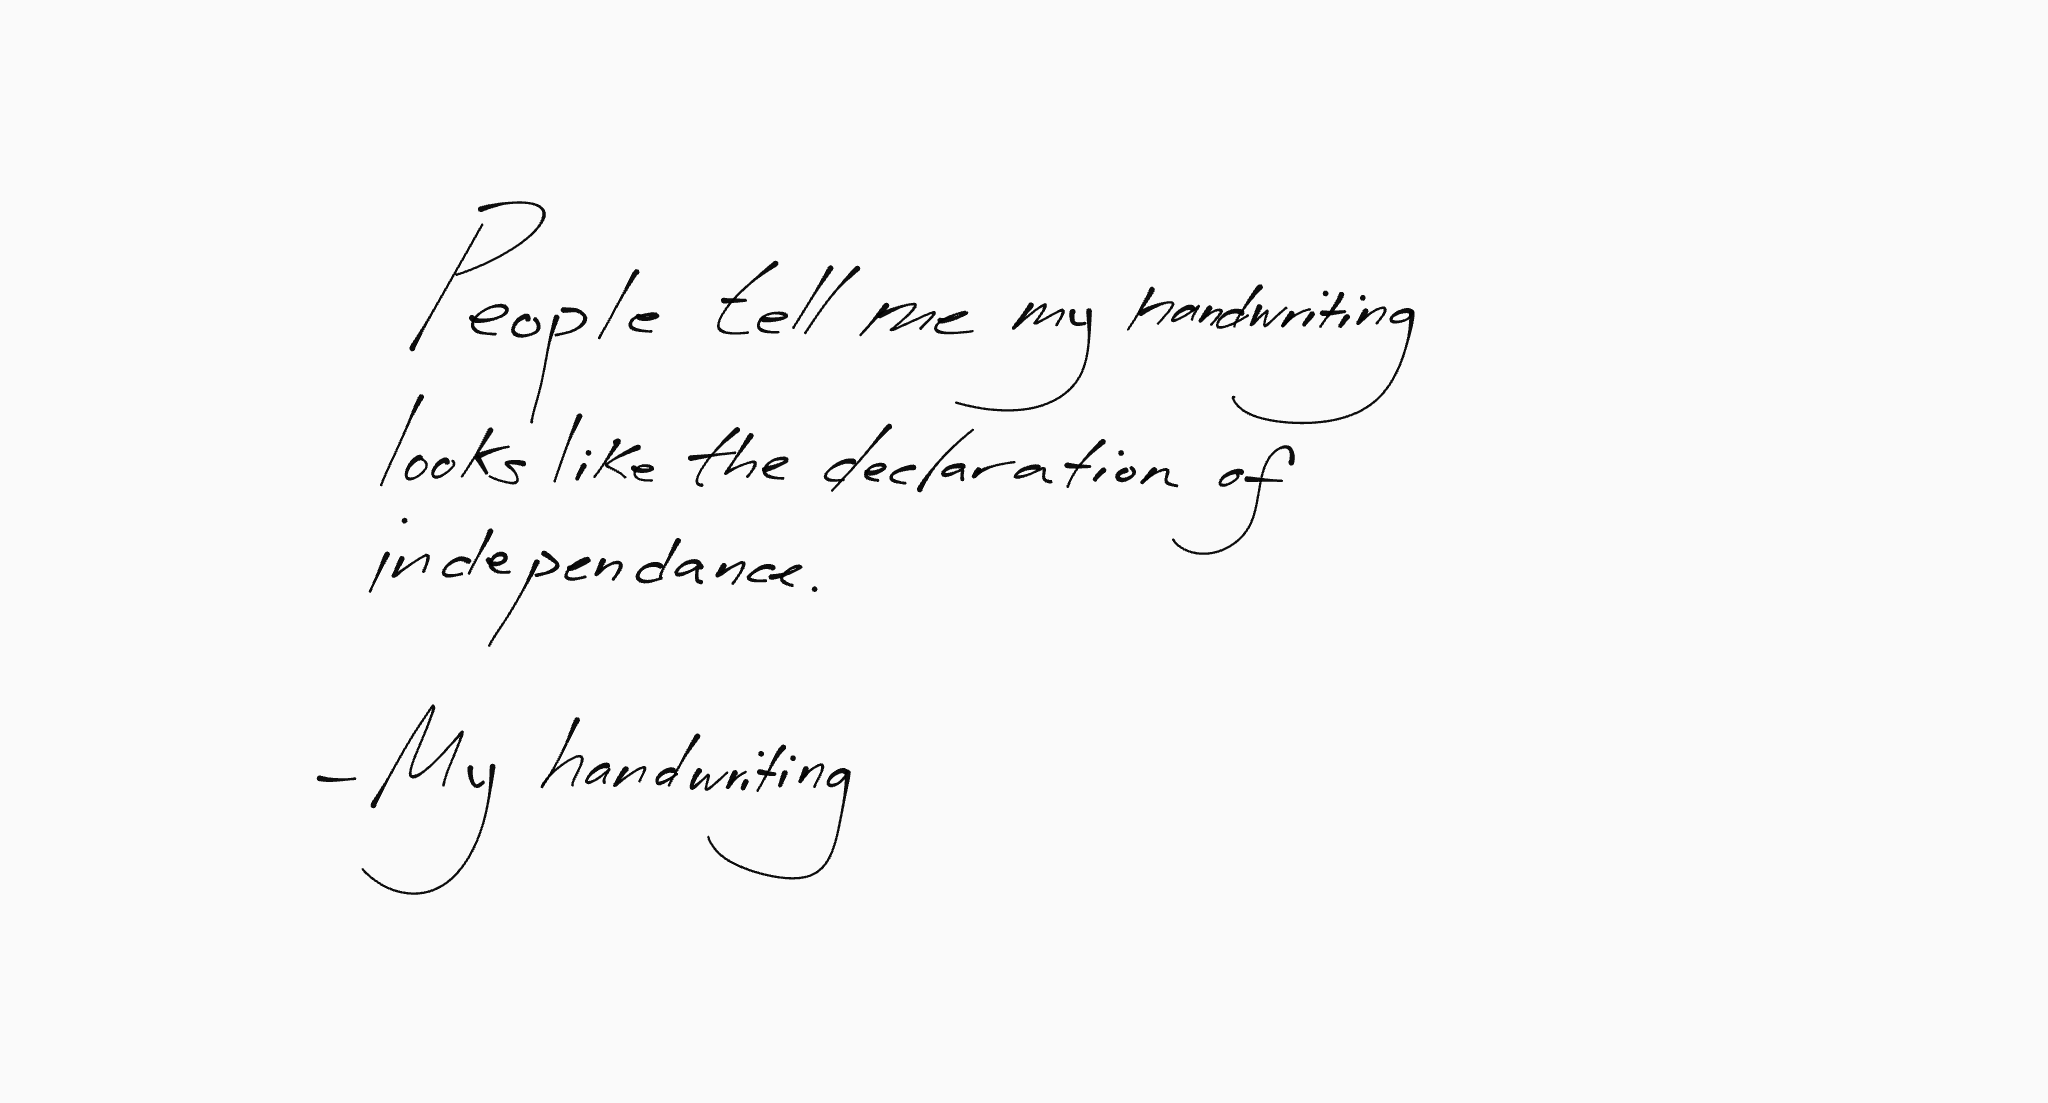 People tell me my handwriting
looks like the declaration of
independance.
- My handwriting